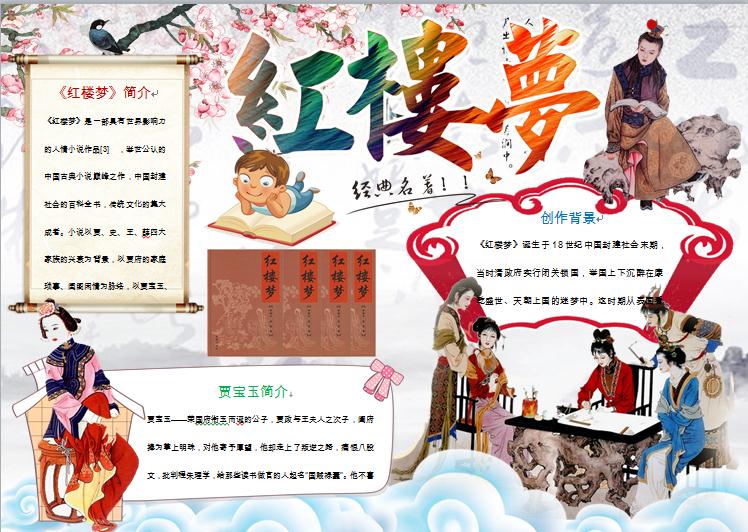 紅樓夢
经典名著！！
《红楼梦》简介
《红楼梦》是一部具有世界影响力
的人情小说作品[3] ，举世公认的
中国古典小说巅峰之作，中国封建
社会的百科全书，传统文化的集大
成者。小说以贾、史、王、薛四大
家族的兴衰为背景，以贾府的家庭
琐事、闺阁闲情为脉络，以贾宝玉、
红楼梦
红楼梦
红楼梦
红楼梦
创作背景
《红楼梦》诞生于 18 世纪中国封建社会末期，
当时清政府实行闭关锁国，举国上下沉醉在康
乾盛世、天朝上国的迷梦中。这时期从表面看
贾宝玉简介
贾宝玉——荣国府衔玉而诞的公子，贾政与王夫人之次子，阖府
捧为掌上明珠，对他寄予厚望，他却走上了叛逆之路，痛恨八股
文，批判程朱理学，给那些读书做官的人起名"国贼禄蠹"。他不喜